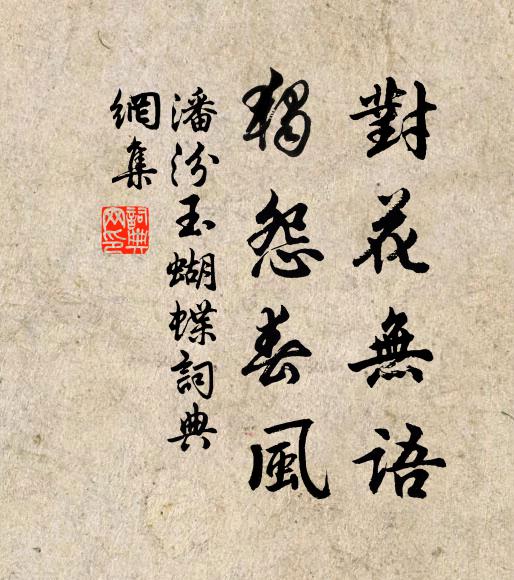 對花無語
獨怨春風
潘汾玉蝴蝶詞典
網集
詞典
網印